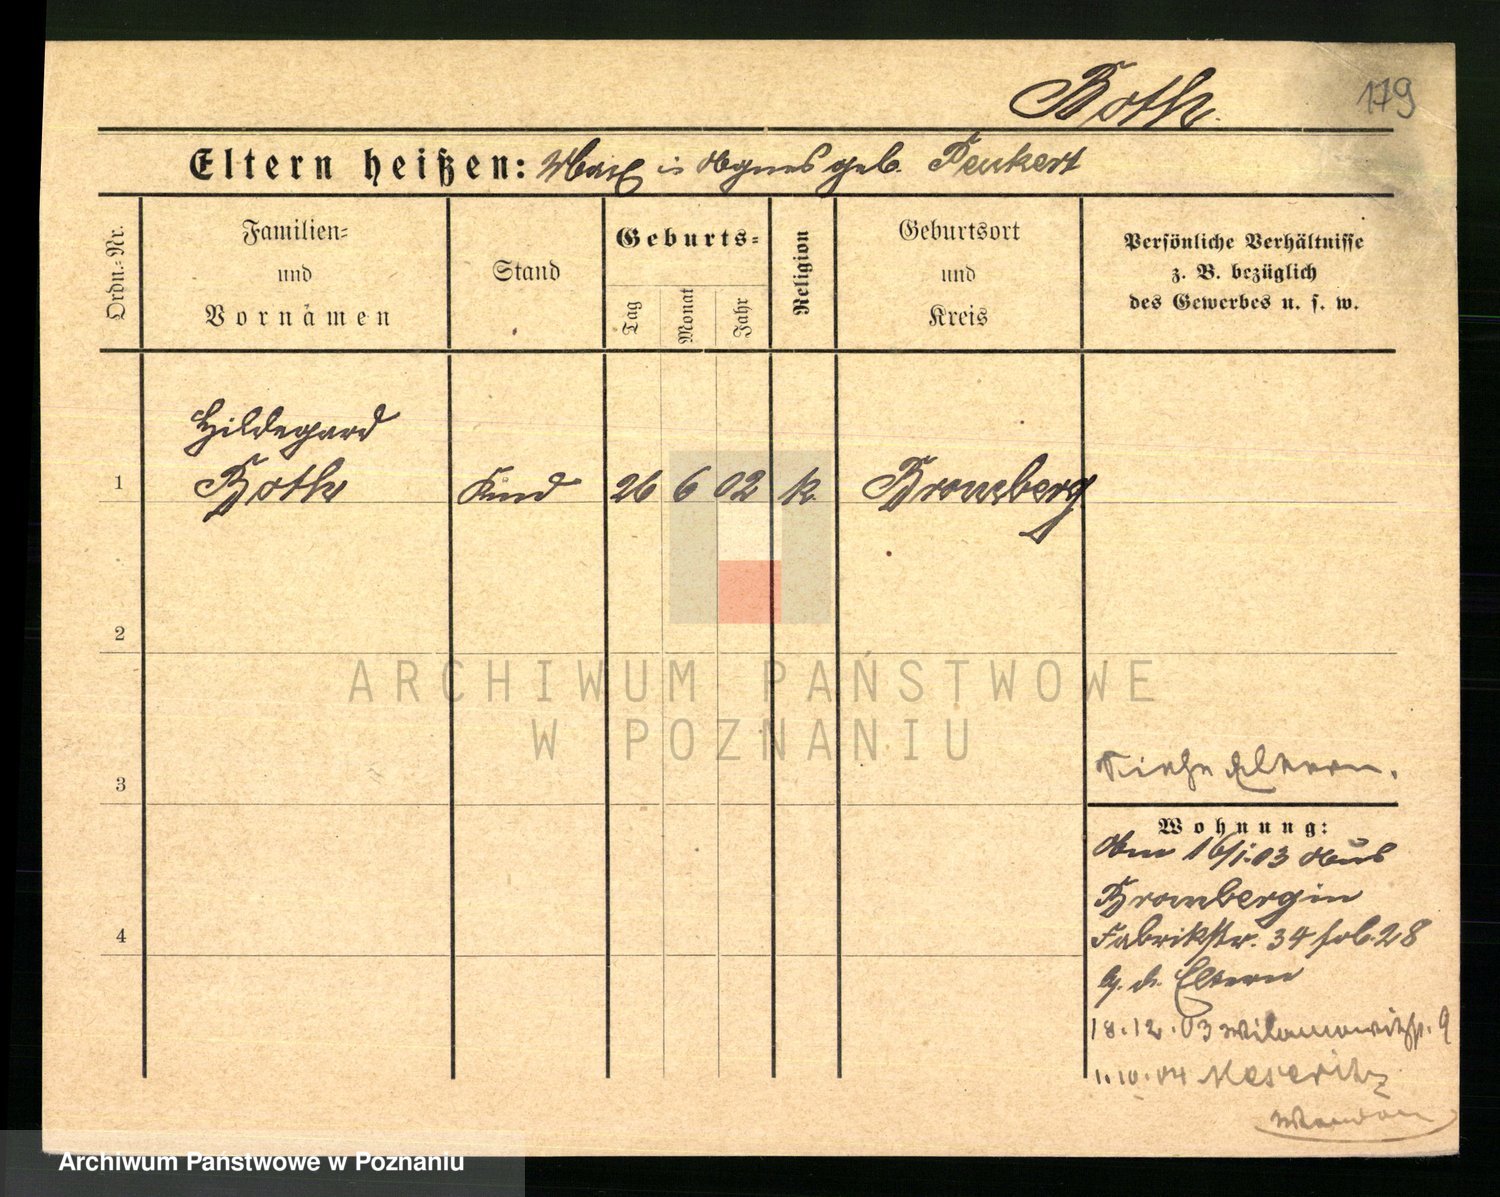 Both.
179
Eltern heißen: Max u Agnes geb. Penkert
Ordn.-Nr.
Familien-
und
Vornamen
Stand
Geburts-
Tag
Monat
Jahr
Religion
Geburtsort
und
Kreis
Persönliche Verhältnisse
z. B. bezüglich
des Gewerbes u. s. w.
Hildegard
1 Both Kind 26 6 02 k. Bromberg
2
ARCHIWUM PAŃSTWOWE
W POZNANIU
3
Siehe Eltern.
Wohnung:
Am 16/1.03 aus
Bromberg in
Fabrikstr. 34 28
4
b. d. Eltern
18.12.03 9
1.10.04 Meseritz
Archiwum Państwowe w Poznaniu